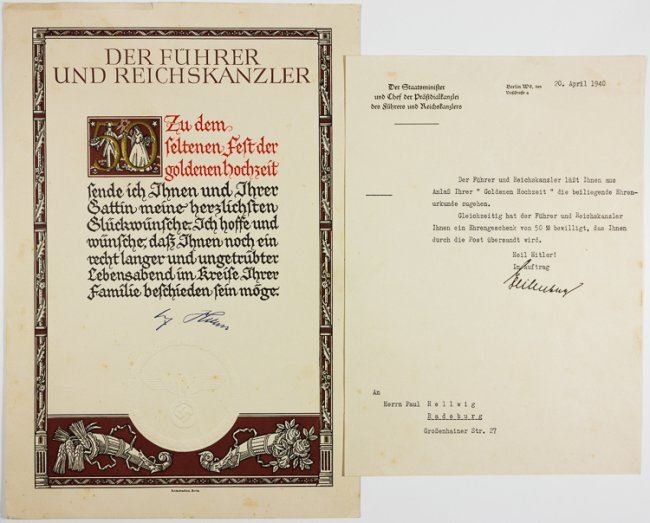 DER FÜHRER
UND REICHSKANZLER
50
Zu dem
seltenen Fest der
goldenen Hochzeit
sende ich Ihnen und Ihrer
Gattin meine herzlichsten
Glückwünsche. Ich hoffe und
wünsche, daß Ihnen noch ein
recht langer und ungetrübter
Lebensabend im Kreise Ihrer
Familie beschieden sein möge.
Der Staatsminister
und Chef der Präsidialkanzlei
des Führers und Reichskanzlers
Berlin W8, den 20. April 1940
Voßstraße 4
Der Führer und Reichskanzler läßt Ihnen aus
Anlaß Ihrer " Goldenen Hochzeit " die beiliegende Ehren-
urkunde zugehen.
Gleichzeitig hat der Führer und Reichskanzler
Ihnen ein Ehrengeschenk von 50 RM bewilligt, das Ihnen
durch die Post übersandt wird.
Heil Hitler!
Im Auftrag
An
Herrn Paul Hellwig
Radeburg
Großenhainer Str. 27